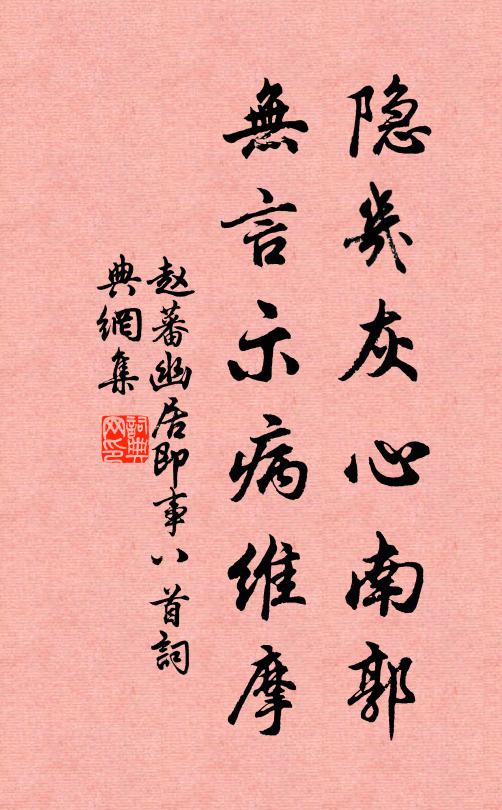 隐几灰心南郭
無言示病维摩
赵蕃幽居即事八首詞
典網集
詞典
网印